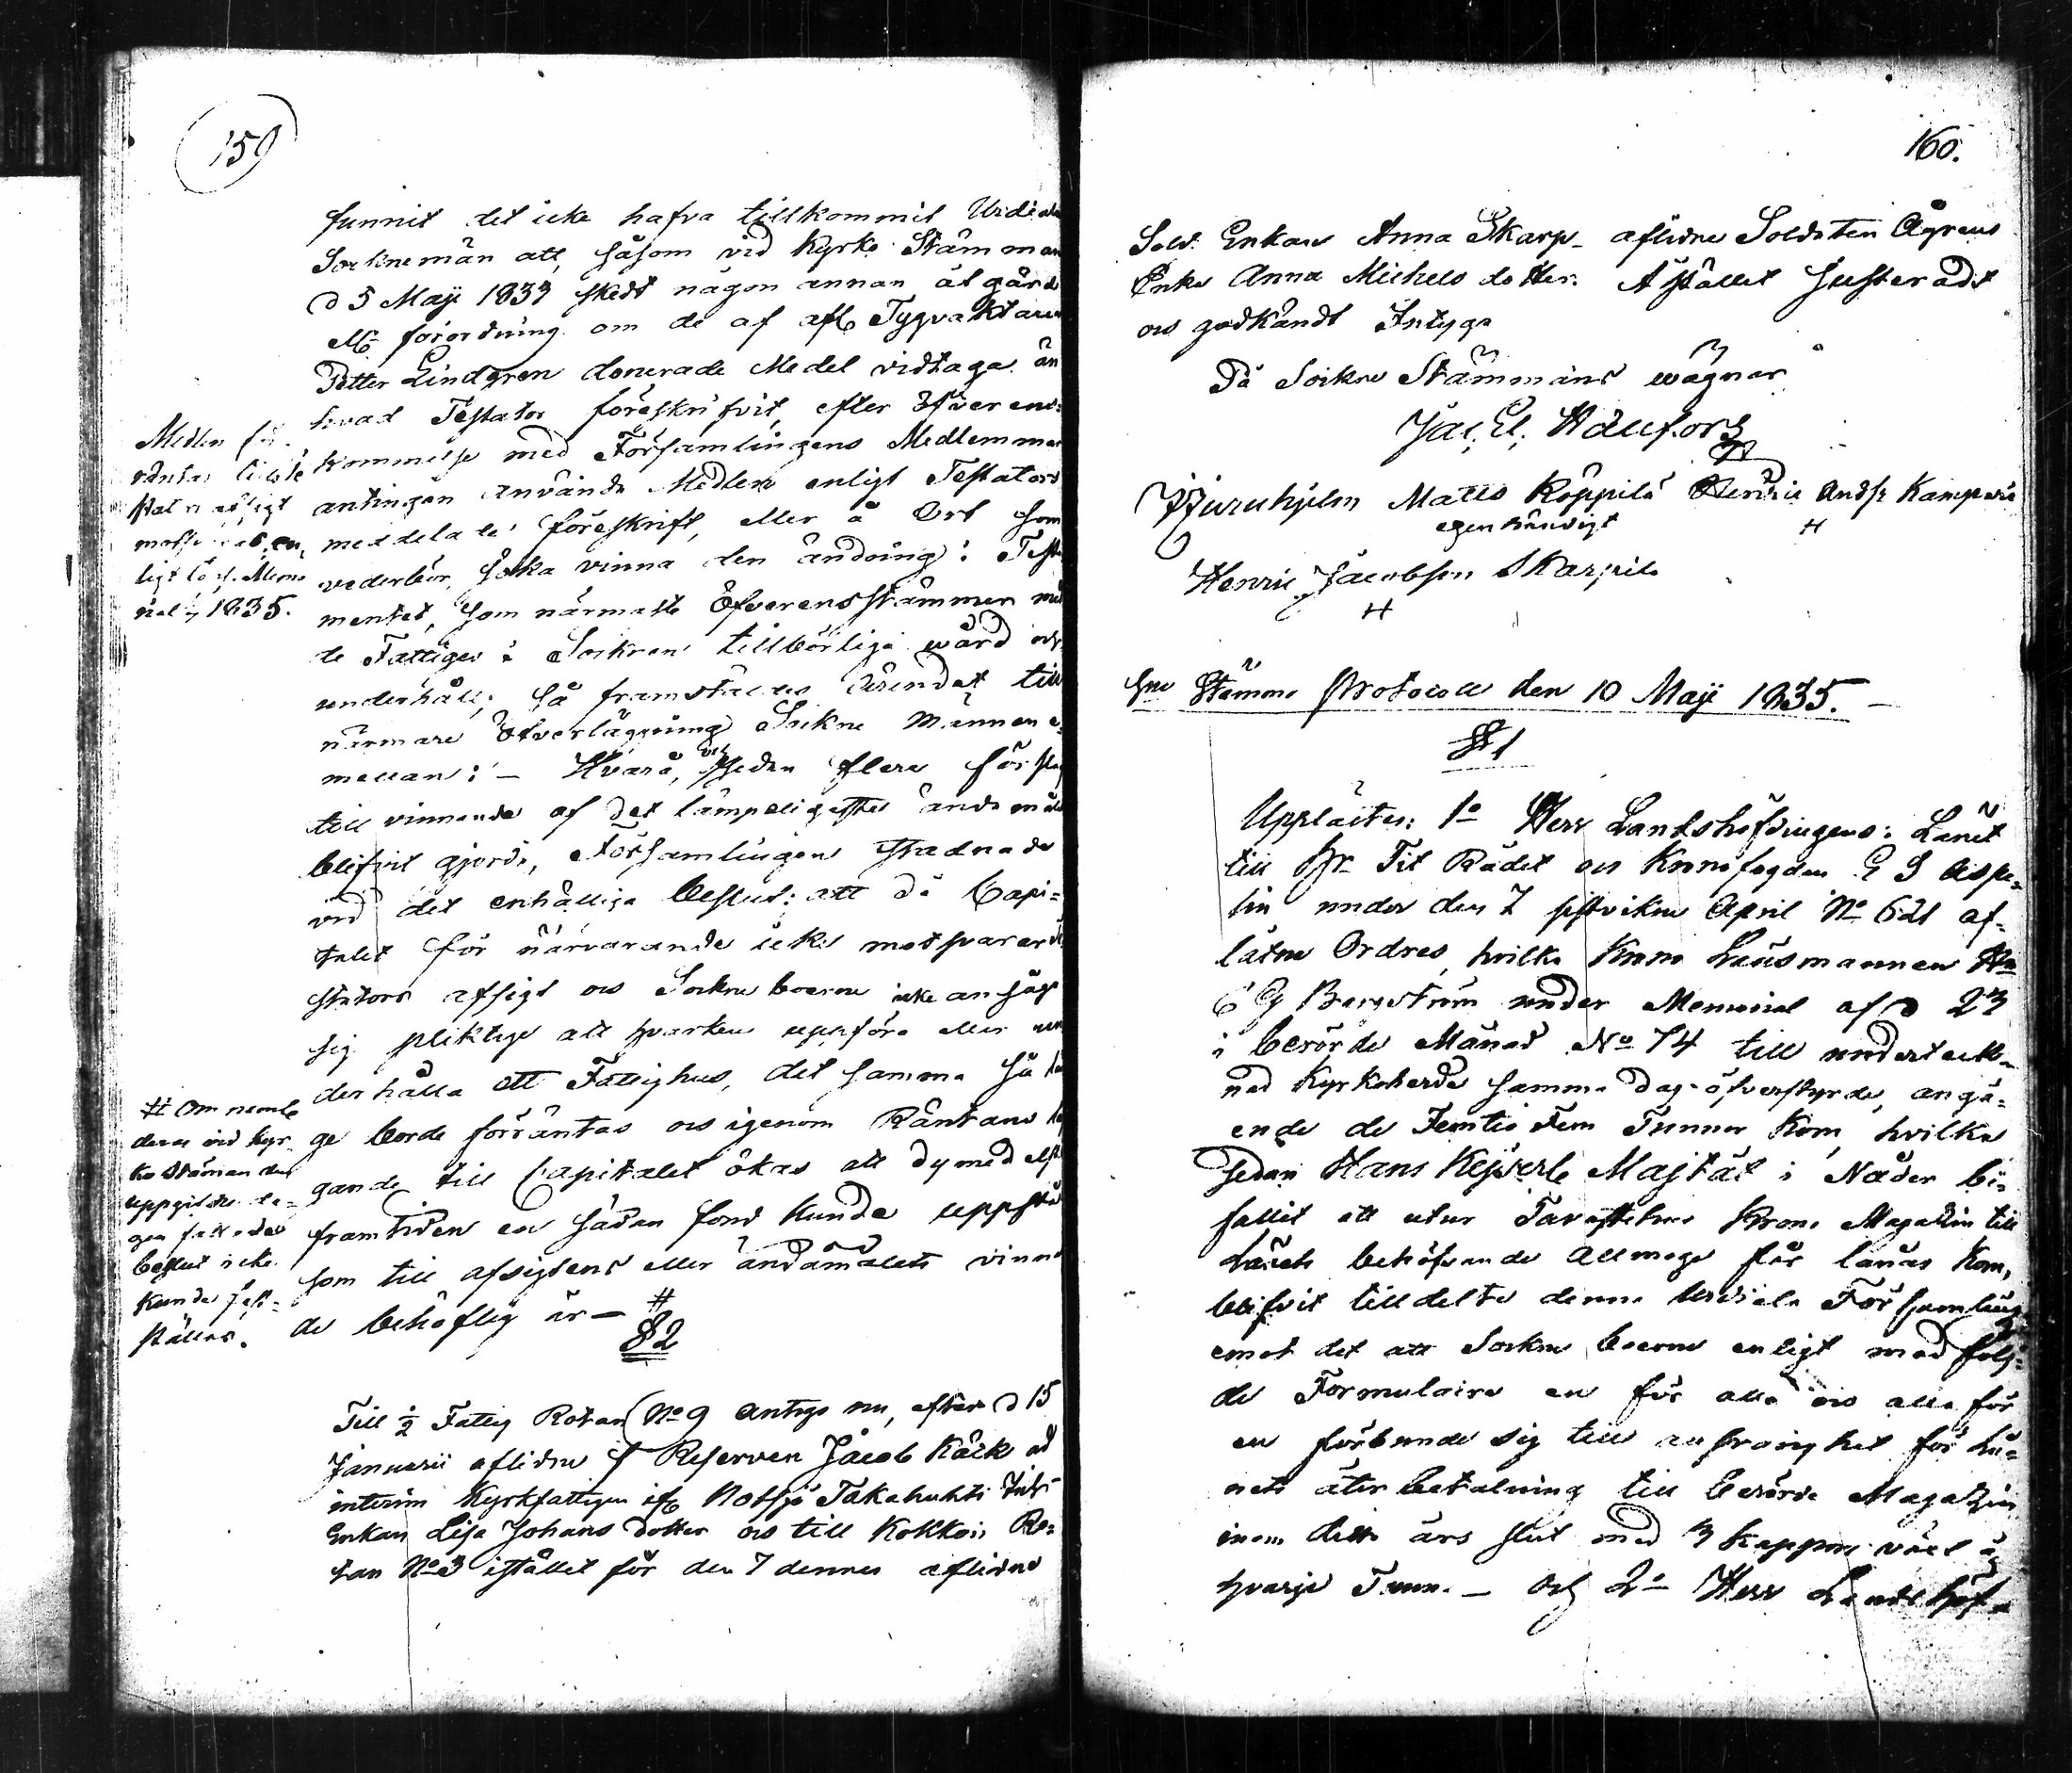 159
funnit det icke hafva tillkommit Urdiala
Sockne män att, såsom vid Kyrko Stämman
d 5 Maji 1834 skedt någon annan åtgärd
förordning om de af afl Tygvaktaren
Petter Lindgren donerade Medel vidtaga än
hvad Testator föreskrifvit, efter öfverens-
kommelse med Församlingens Medlemmar
antingen använda Medlen enligt Testators
meddelade föreskrift, eller å Ort som
vederbör, söka vinna den ändring i Testa
mentet, som närmaste öfverensstämmer med
de Fattiges i Socknen tillbörliga wård och
underhåll; så framstäldes ärendet till
närmare öfverläggning Sockne Männen e-
mellan; — Hvarå, sedan flere förslag
till vinnande af det lämpeligaste ändamål
blifvit gjorde, Församlingen stadnade
vid det enhälliga beslut: att då Capi-
talet för närvarande icke motsvarar Te
stators afsigt och Sockneboerne icke ansågo
sig pliktige att hvarken uppföra eller un
derhålla ett Fattighus, det samma så län
ge borde förräntas och igenom Räntans läg
gande till Capitalet ökas att dymedelst
framtiden en sådan fond kunde uppstå
som till afsigtens eller ändamålets vinnan
de behöflig är — #
Medlen för-
räntas
enligt

ligt Memo
rial 1835.
# Om nemle
deras vid Kyr-
ko Stäman der
uppgifne de-
gen fattades
beslut icke
kunde
ställas.
§ 2
Till ½ Fattig Rotan No 9 antogs nu, efter d 15
Januarii aflidne f Reserven Jacob Käck ad
interim Kyrkfattigen Notsjö Takahuhti
Enkan Lisa Johans dotter och till Kokkois Ro-
tan No 3 istället för den 7 dennes aflidne
160.
Sold. Enkan Anna Skarp aflidne Soldaten Ågrens
Enka Anna Michels dotter. Å stället justeradt
och godkändt Intyga
På Sockne Stämmans wägnar
Jac. El. Wallfors
J Juruhjelm Matts Köppilä Henric Andss Kamperi
egenhändigt H
Henric Jacobsson Skarpila
H
Stämmo Protocoll den 10 Maji 1835. —
§ 1
Upplästes: 1o Herr Landshöfdingens i Länet
till Hr Tit Rådet och Kronofogden E J Aspe-
lin under den 7 sistvikne April No 621 af-
låtne Ordres, hvilka Krono Länsmannen Hr
C G Bergström under Memorial af d 23
i berörde Månad No 74 till underteck-
nad Kyrkoherde samma dag öfverstyrde, angå-
ende de Femtio Fem Tunnor Korn, hvilka
sedan Hans Kejserle Majstät i Nåder bi-
fallit att utur Tavastehus Krono Magazin till
Länets behöfvande Allmoge får lånas Korn,
blifvit tilldelta denna Urdiala Församling
emot det att Sockne boerne enligt medfölj-
de Formulaire en för alla och alla för
en förbunde sig till ansvarighet för lå-
nets återbetalning till berörde Magazin
inom detta års slut med 3 kappor växt å
hvarje Tunna — Och 2o Herr Landshöf-